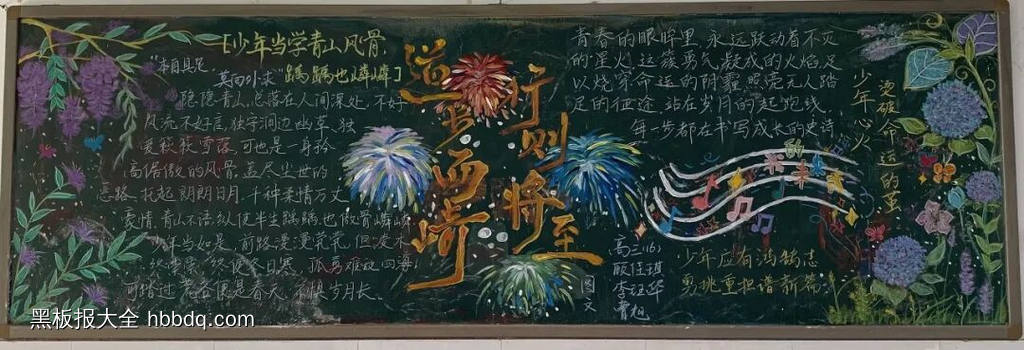 [少年当学青山风骨,
"本自具足,
莫向外求" 踽踽也嶙嶙]
隐隐青山,总落在人间深处,不好
风流不好高,独怜涧边幽草,独
爱秋秋雪落,可也是一身矜
高倨傲的风骨,盖尽尘世的
悲路,托起朗朗日月,千种柔情万丈
豪情,青山不语,纵使半生踽踽,也傲骨嶙嶙
少年当如是,前路漫漫茫茫,但凌
终使冬日寒,孤勇难敌四海
可捂过苍苍便是春天,不惧岁月长。
道阻且峙
行则将至
青春的眼眸里,永远跃动着不灭
的星火,这簇勇气凝成的火焰足
以烧穿命运的阴霾,照亮无人踏
足的征途,站在岁月的起跑线,
每一步都在书写成长的史诗
少年心火
突破命运的茧
的
未来
少年应有鸿鹄志
勇挑重担谱新篇
高三(6)
图文
黑板报大全 hbbdq.com